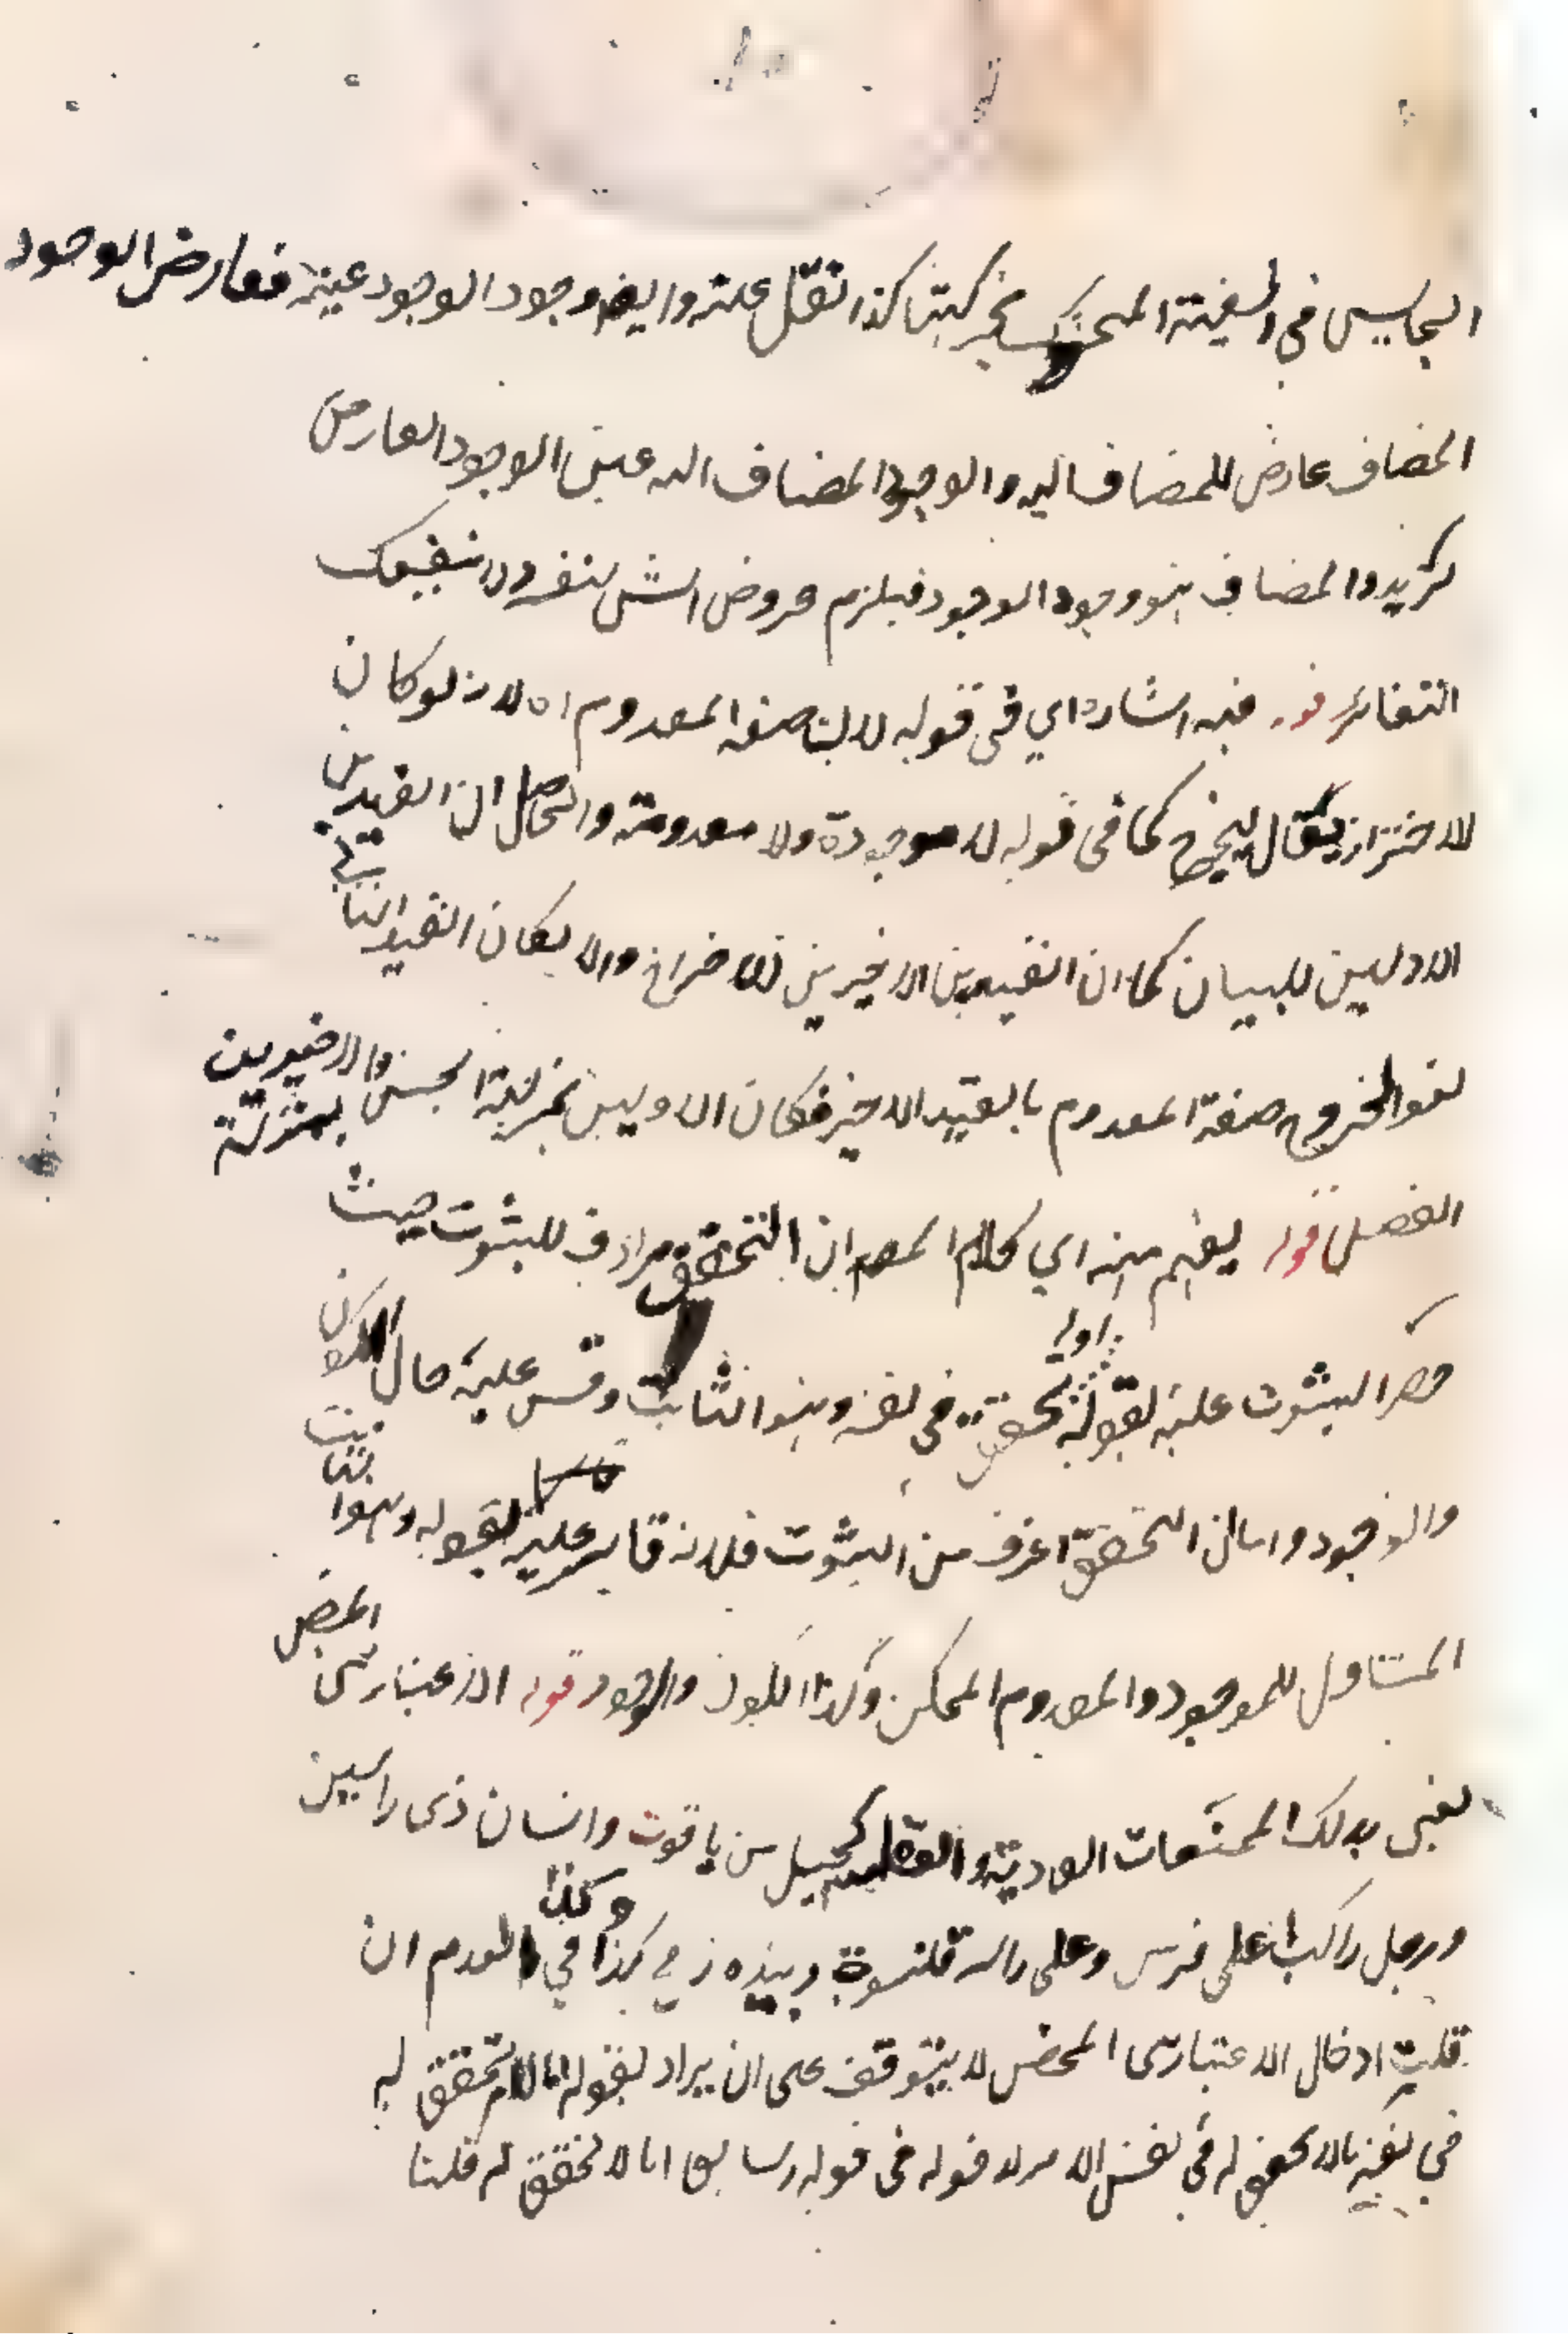 الجالس في السفينة المتحرك بحركتها كذا نقل عنه وايضا وجود الوجود عينه فعارض الوجود
المضاف عارض للمضاف اليه والوجود المضاف اليه عين الوجود العارض
لزيد والمضاف هو وجود الوجود فيلزم عروض الشئ لنفسه ولا ينفعك
التغاير قوله فيه اشارة اي في قوله لا لها صفة المعدوم اه لانه لو كان
للاحتراز لقال ليخرج كما في قوله لا موجودة ولا معدومة والحاصل ان القيدين
الاولين للبيان كما ان القيدين الاخيرين للاخراج والا لكان القيد الثاني
لغوا لخروج صفة المعدوم بالقيد الاخير فكان الاوليين بمنزلة الجنس والاخيرين بمنزلة
الفصل قوله يفهم منه اي كلام المص ان التحقق مرادف للثبوت حيث
قصر الثبوت عليه بقوله اولا تحقق في نفسه وهو الثابت وقس عليه حال الكون
والوجود واما ان التحقق اعرف من الثبوت فلانه قابل عليه بقوله وهو الثابت
المتناول للموجود والمعدوم الممكن وكذا الكون والوجود قوله الاعتباري المحض
يعني بذلك الممتنعات العادية والعقلية كجبل من ياقوت وانسان ذي راسين
ورجل راكب على فرس وعلى راسه قلنسوة وبيده رمح كذا في وكذا العدم ان
قلت ادخال الاعتباري المحض لا يتوقف على ان يراد بقوله اما لا تحقق له
في نفسه ما لا تحقق له في نفس الامر لا قوله في قوله سابقا اما لا تحقق له قلنا